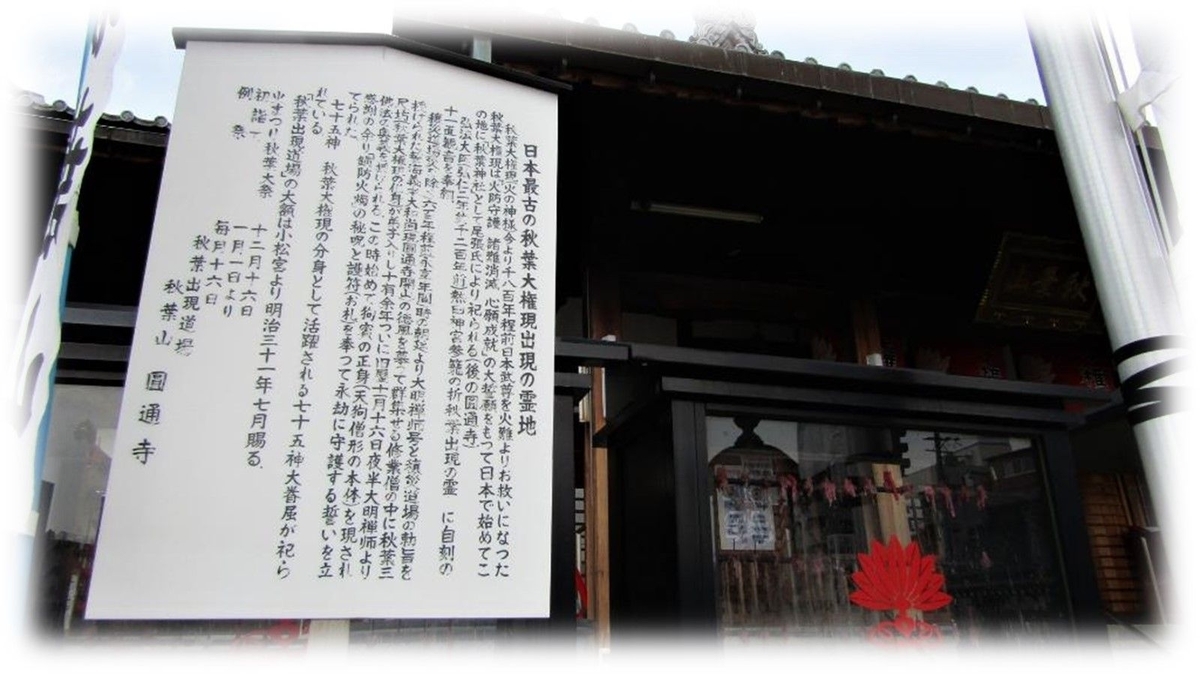 日本最古の秋葉大権現出現の霊地
秋葉大権現(火の神様)今より千八百年程前日本武尊を火難よりお救いになつた
秋葉大権現は「火防守護 諸難消滅 心願成就」の大誓願をもつて日本で始めてこ
の地に「秋葉神社」として尾張氏により祀られる(後の圓通寺)
弘法大師(弘仁二年 千二百年前)熱田神宮参籠の折秋葉出現の霊 に自刻の
十一面観音を奉
六百年程前 永享年間時の朝廷より大明禅師号と 道場の勅旨を
大和尚 圓通寺開山の徳風を慕って群集せる修業僧の中に秋葉三
尺坊(秋葉大権現の化身)が弟子入りし十有余年ついに旧暦十一月十六日夜半大明禅師より
佛法の奥義を授けられる この時始めて狗賓の正身(天狗僧形の本体)を現され
の余り「鎮防火燭の秘呪と護符」お札を奉つて永劫に守護する誓いを立
てられた
七十五神 秋葉大権現の分身として活躍される七十五神大眷属が祀ら
れている
「秋葉出現道場」の大額は小松宮より明治三十一年七月賜る
火まつり秋葉大祭 十二月十六日
初詣 一月一日より
例祭 毎月十六日
秋葉出現道場
秋葉山 圓通寺